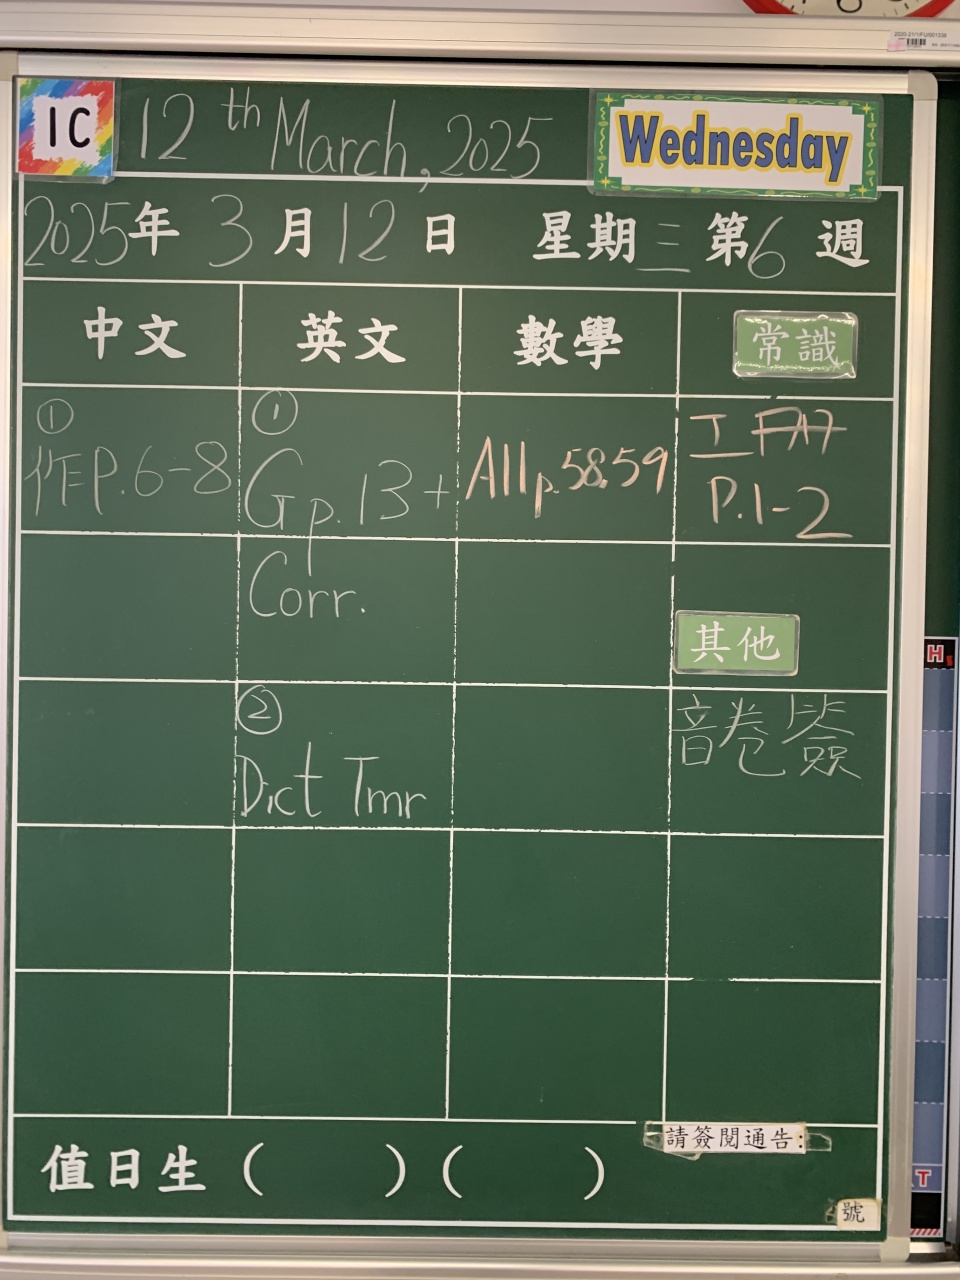 1C 12th March, 2025 Wednesday
2025年 3月12日 星期三 第6週
中文 英文 數學 常識
①
作P.6-8
①
G p.13 +
Corr.
②
Dict Tmr
A11 p.58,59
工
P.1-2
其他
音卷簽
值日生 ( ) ( )
請簽閱通告:
號
2020-21/1/FU/001338
H
T